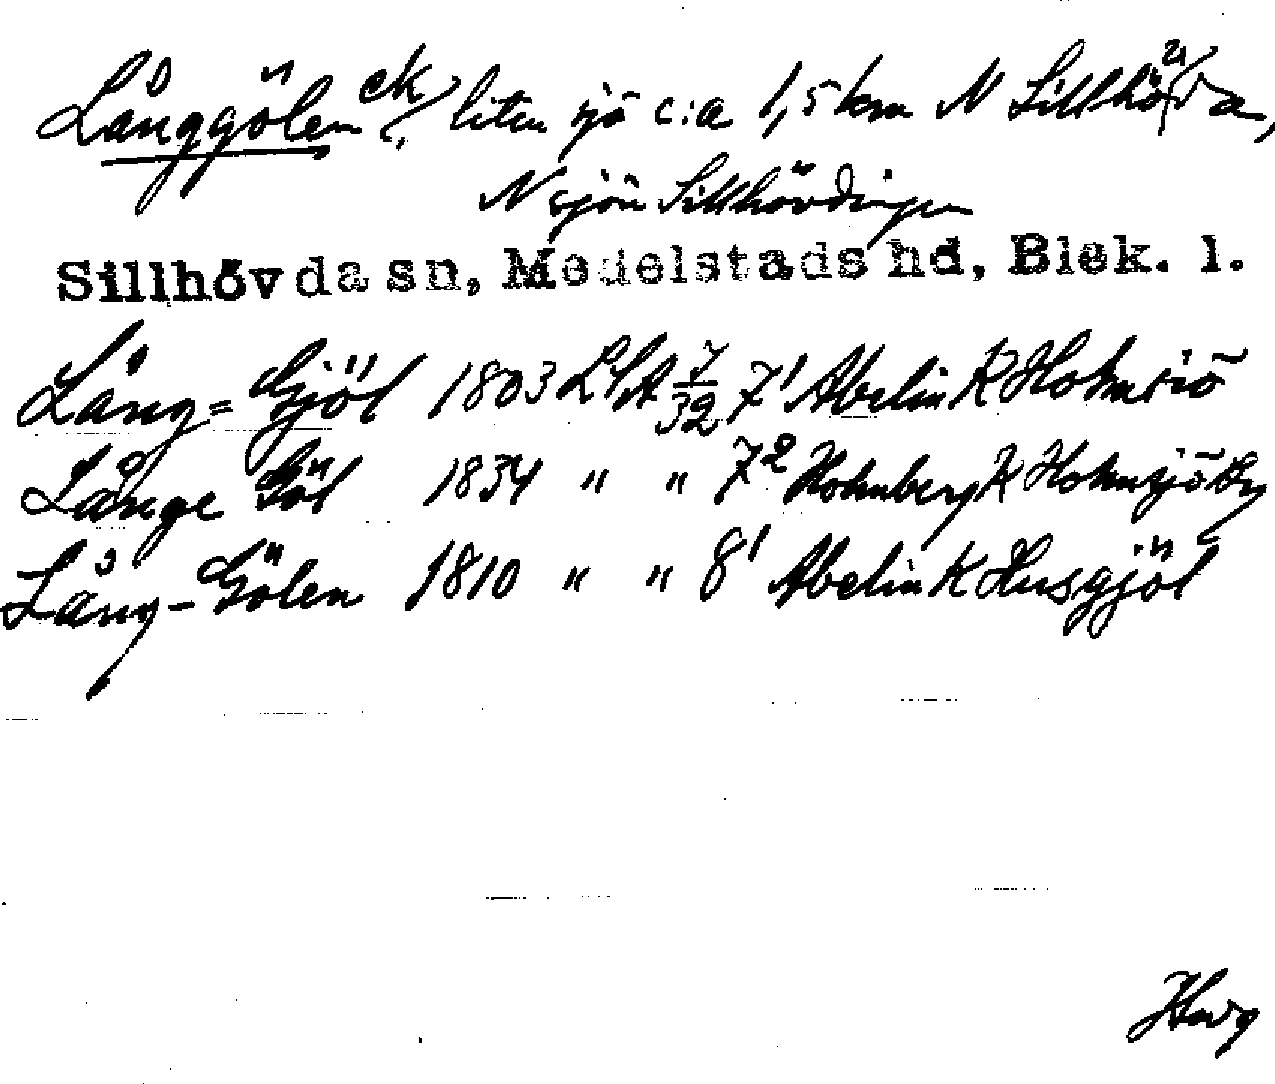 Långgölen ek, liten sjö c:a 1,5 km N Sillhövda,
N sjön Sillhövdingen
Sillhövda sn, Medelstads hd, Blek. l.
Lång=Gjöl 1803 LSA 7/32 7¹ Abelin K Holmsiö
Långe Göl 1834 " " 7² Holmberg K Holmsjö By
Lång-Gölen 1810 " " 8¹ Abelin K Husgjöl